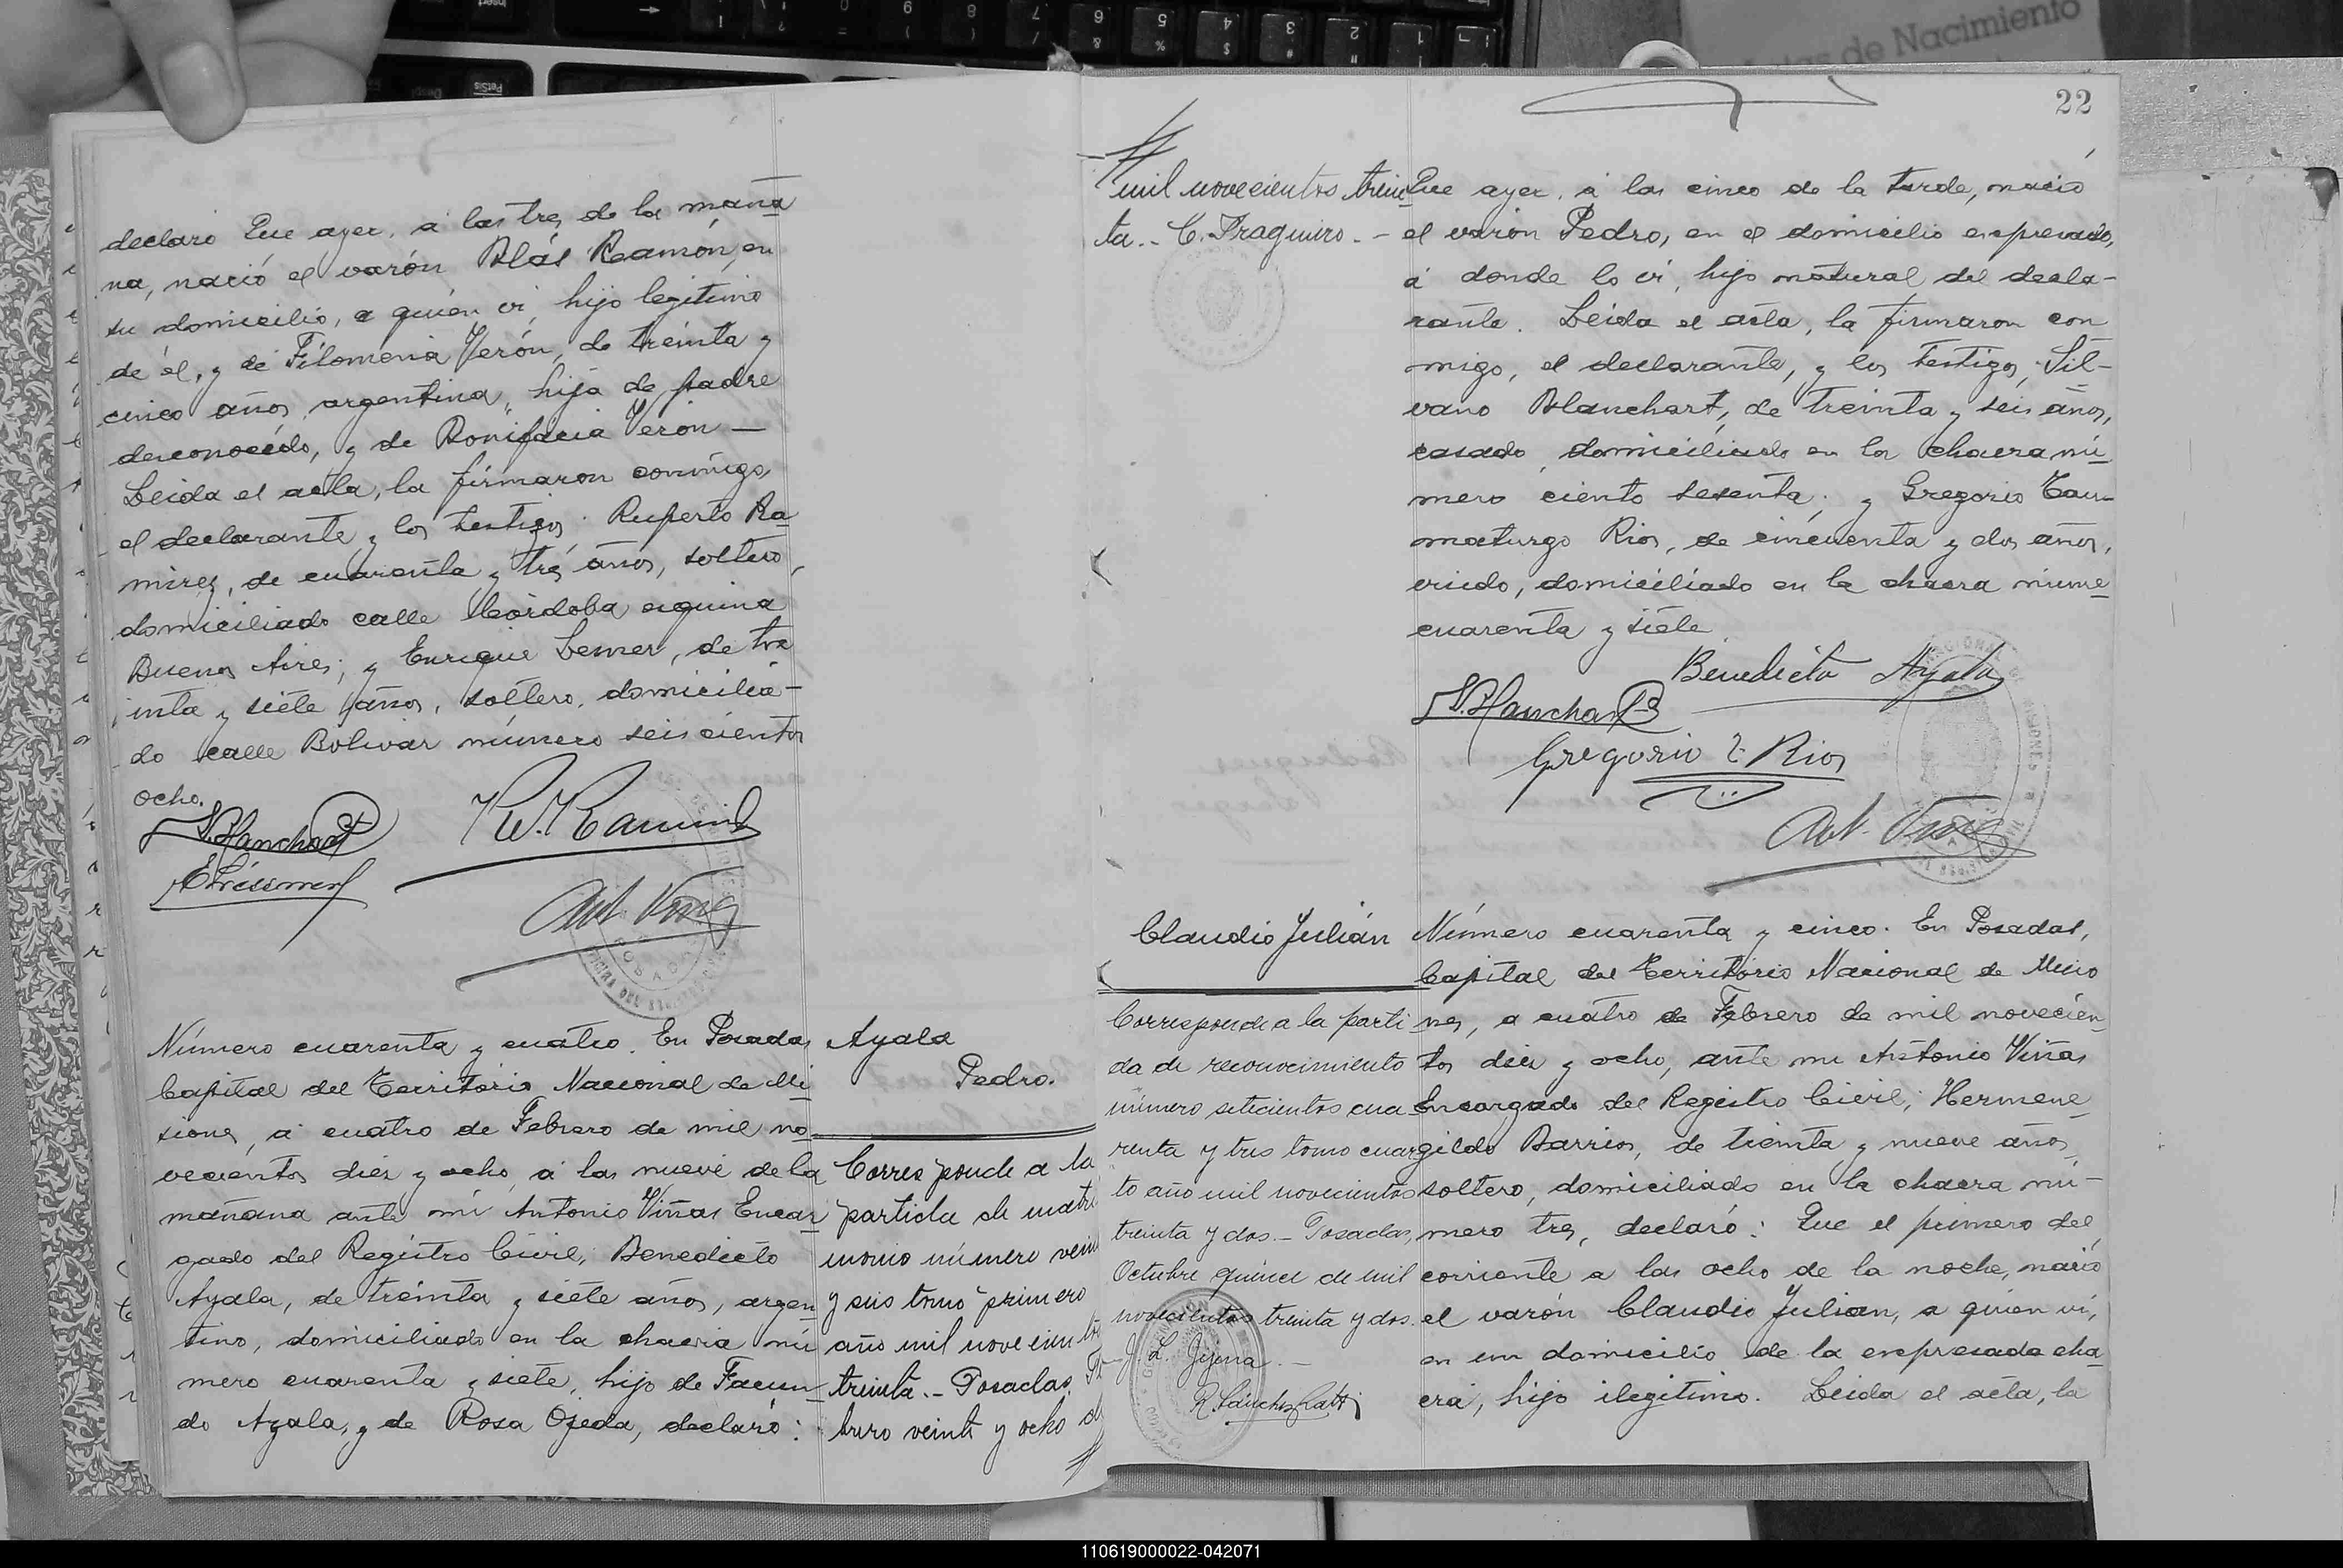 declaró Que ayer, á las tres de la maña
na, nació el varón Blás Ramón, en
su domicilio, a quien vi, hijo legítimo
de él, y de Filomena Verón, de treinta y
cinco años, argentina, hija de padre
desconocido, y de Bonifacia Verón —
Leida el acta, la firmaron conmigo,
el declarante y los testigos: Ruperto Ra
mirez, de cuarenta y tres años, soltero,
domiciliado calle Córdoba esquina
Buenos Aires; y Enrique Lesner, de tre
inta y siete años, soltero, domicilia-
do calle Bolivar número seiscientos
ocho.
S. Blanchart
Ant. Viñas
Número cuarenta y cuatro. En Posadas
Capital del Territorio Nacional de Mi
siones, á cuatro de Febrero de mil no
vecientos diez y ocho, á las nueve de la
mañana ante mí Antonio Viñas Encar
gado del Registro Civil, Benedicto
Ayala, de treinta y siete años, argen
tino, domiciliado en la chacra nú
mero cuarenta y siete, hijo de Facun
do Ayala, y de Rosa Ojeda, declaró:
Ayala
Pedro.
Corresponde a la
partida de matri
monio número vein
y seis tomo primero
año mil novecientos
treinta.- Posadas,
brero veinte y ocho d
22
mil novecientos trein
ta.- C. Fraguiero.-
Que ayer, á las cinco de la tarde, nació
el varón Pedro, en el domicilio expresado,
á donde lo vi, hijo natural del decla-
rante. Leida el acta, la firmaron con
migo, el declarante, y los testigos, Sil-
vano Blanchart, de treinta y seis años,
casado, domiciliado en la chacra nú
mero ciento sesenta; y Gregorio Tau-
maturgo Rios, de cincuenta y dos años,
viudo, domiciliado en la chacra núme
cuarenta y siete.
Benedicto Ayala
S. Blanchart
Gregorio T. Rios
Ant. Viñas
Claudio Julián
Corresponde a la parti
da de reconocimiento
número setecientos cua
renta y tres tomo cuar
to año mil novecientos
treinta y dos.- Posadas,
Octubre quince de mil
novecientos treinta y dos.
J. L. Gijena.-
Número cuarenta y cinco. En Posadas,
Capital del Territorio Nacional de Misio
nes, a cuatro de Febrero de mil novecien
tos diez y ocho, ante mi Antonio Viñas
Encargado del Registro Civil, Hermene
gildo Barrios, de treinta y nueve años,
soltero, domiciliado en la chacra nú-
mero tres, declaró: Que el primero del
corriente a las ocho de la noche, nació
el varón Claudio Julian, a quien vi,
en un domicilio de la expresada cha
cra, hijo ilegitimo. Leida el acta, la
110619000022-042071